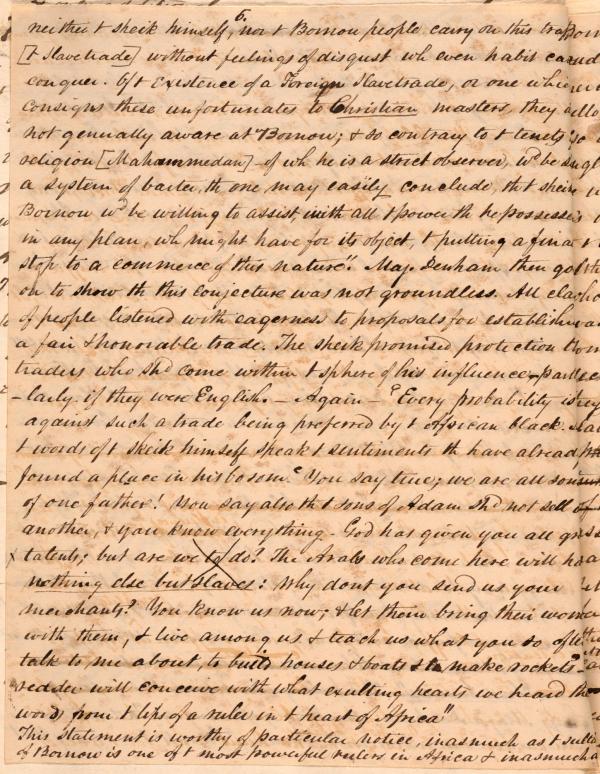 6.
neither t sheik himself, nor t Bornou people carry on this traf
[t Slavetrade] without feelings of disgust wh even habit can
conquer. Of t existence of a Foreign Slavetrade, or one which
consigns these unfortunates to Christian masters, they a
not generally aware at Bornou; & so contrary to t tenets
religion [Mahammedan] - of wh he is a strict observer, wd be su
a system of barter, th one may easily conclude, tht sheik
Bornou wd be willing to assist, with all t power th he possesse
in any plan, wh might have for its object, t putting a fina
stop to a commerce of this nature". Maj. Denham then go
on to show th this conjecture was not groundless. All cla
of people listened with eagerness to proposals for establish
a fair & honorable trade. The sheik promised protection t
traders who shd come within t sphere of his influence - parti
-larly if they were English. - Again - "Every probability is
against such a trade being preferred by t African black.
t words of t sheik himself speak t sentiments th have alread
found a place in his bosom. "You say true; we are all sons
of one father! You say also th t sons of Adam shd not sell
another, & you know everything - God has given you all g
talents; but are we to do? The Arabs who come here will h
nothing else but slaves: Why dont you send us your
merchants? You know us now; & let them bring their wom
with them, & live among us & teach us what you so ofte
talk to me about, to build houses & boats & to make rockets"
reader will conceive with what exulting hearts we heard th
words from t lips of a ruler in t heart of Africa"
This statement is worthy of particular notice, inasmuch as t sul
of Bornou is one of t most powerful rulers in Africa & inasmuch a